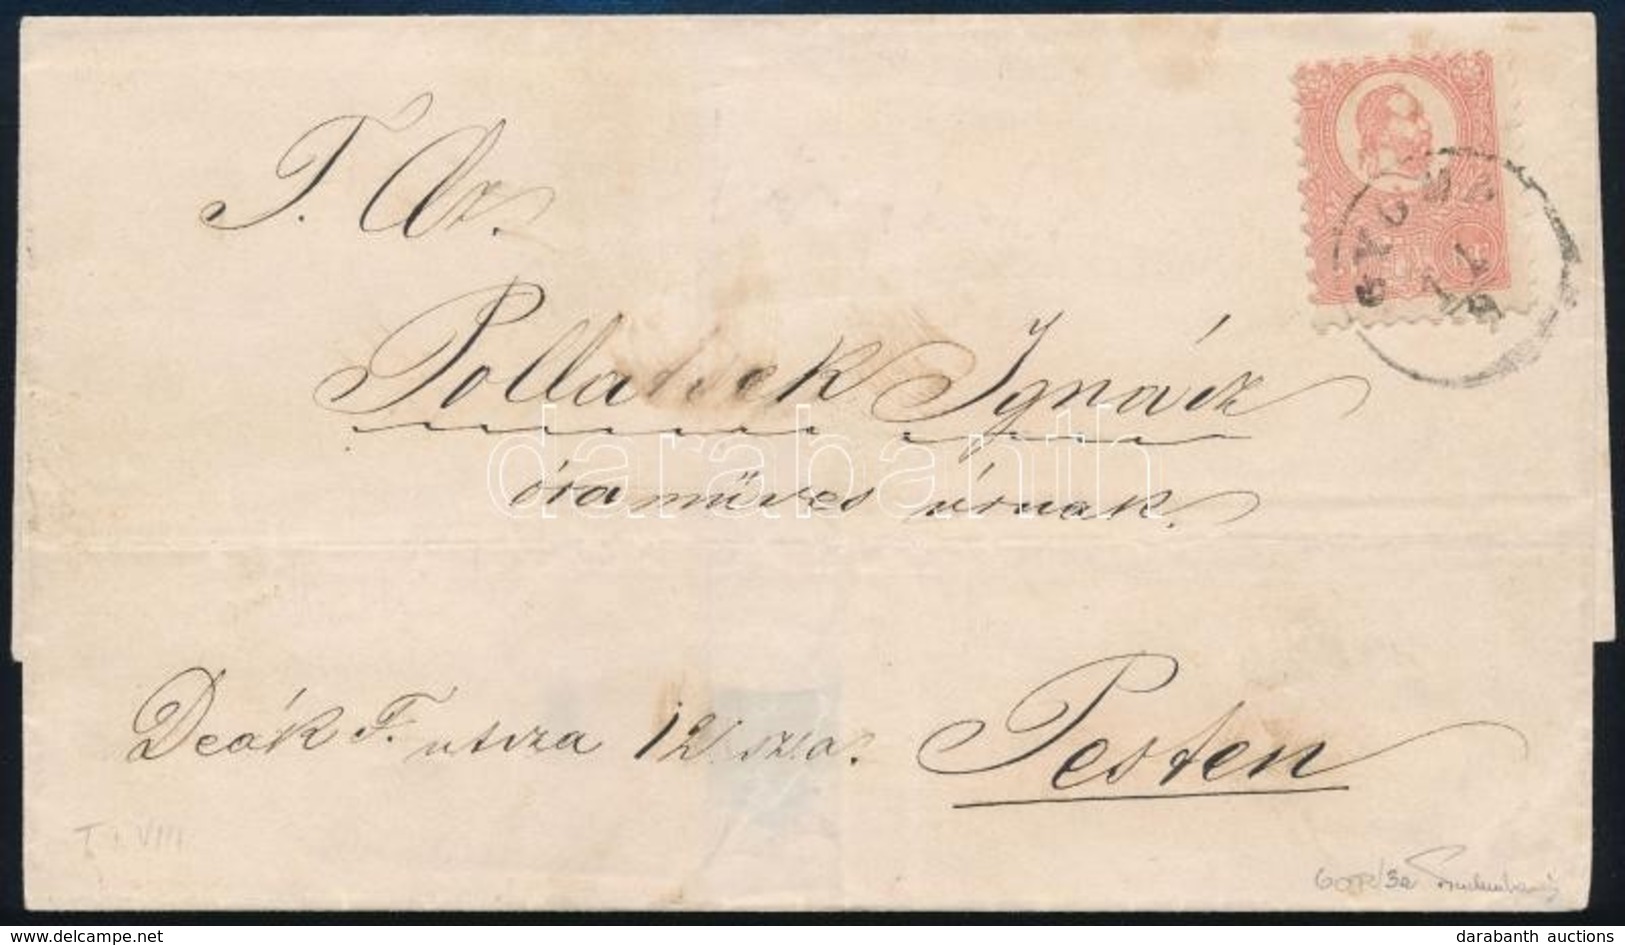 T. Cz.
GYOMA
Pollatsek Ignácz
darabanth
óraműves úrnak.
Deák F. utcza 12 sz. a. Pesten
T. + VIII
delcampe.net
darabanth auctions